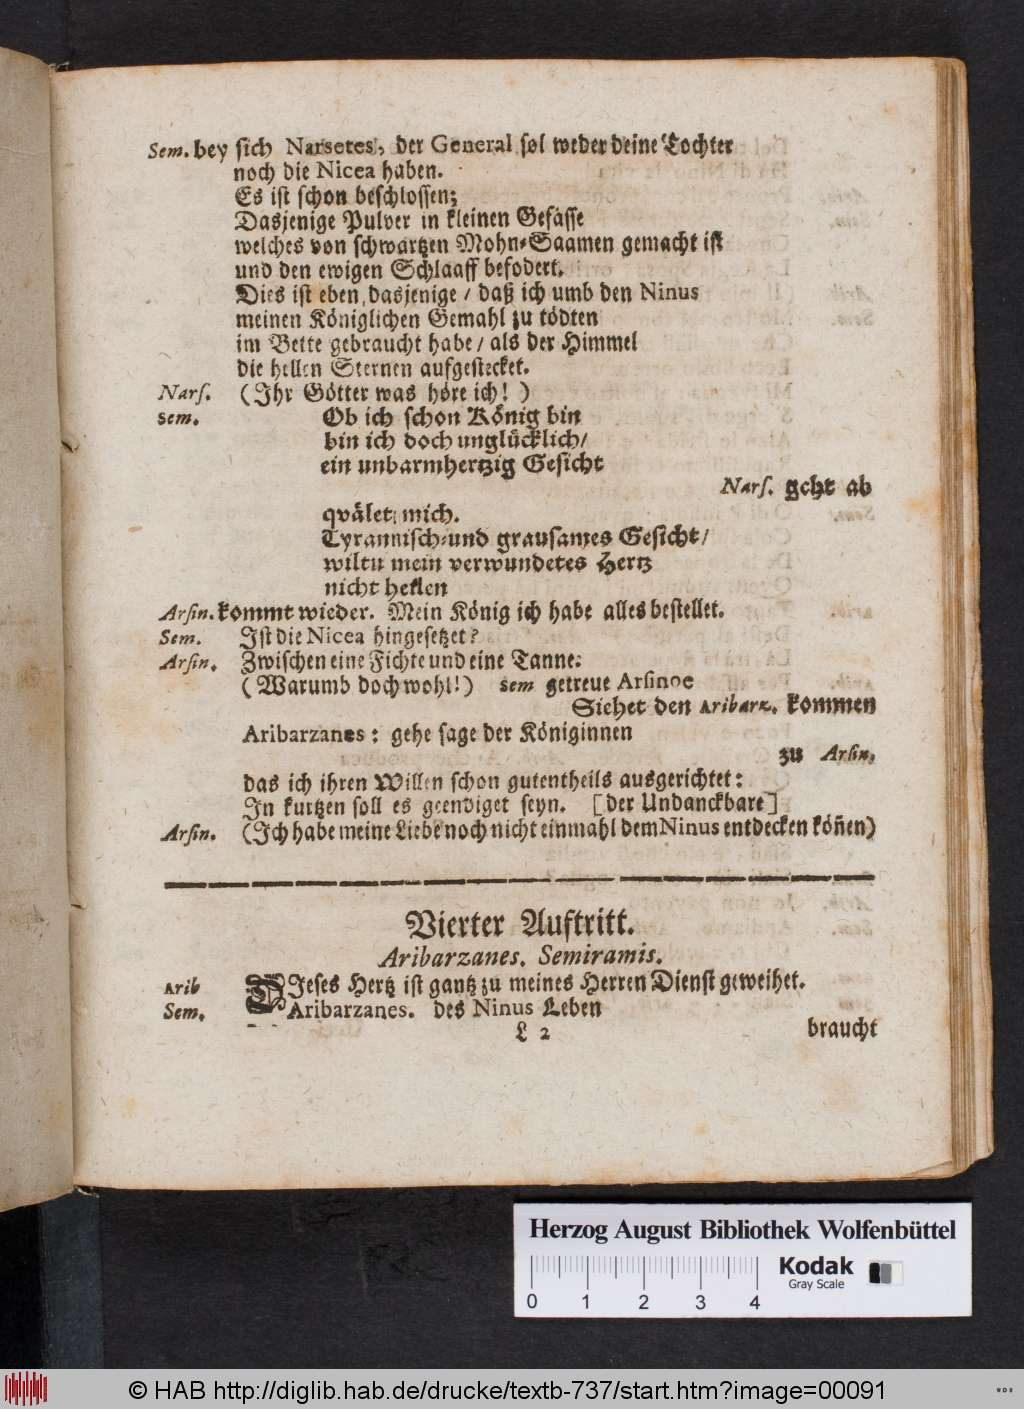 Sem. bey sich Narsetes, der General sol weder deine Tochter
noch die Nicea haben.
Es ist schon beschlossen;
Dasjenige Pulver in kleinen Gefässe
welches von schwartzen Mohn-Saamen gemacht ist
und den ewigen Schlaaff befodert.
Dies ist eben dasjenige / daß ich umb den Ninus
meinen Königlichen Gemahl zu tödten
im Bette gebraucht habe / als der Himmel
die hellen Sternen aufgestecket.
Nars. (Ihr Götter was höre ich! )
Sem. Ob ich schon König bin
bin ich doch unglücklich /
ein unbarmhertzig Gesicht
Nars. geht ab
qvälet mich.
Tyrannisch-und grausames Gesicht /
wiltu mein verwundetes Hertz
nicht heilen
Arsin. kommt wieder. Mein König ich habe alles bestellet.
Sem. Ist die Nicea hingesetzet?
Arsin. Zwischen eine Fichte und eine Tanne.
(Warumb doch wohl!) Sem getreue Arsinoe
Siehet den Aribarz. kommen
Aribarzanes: gehe sage der Königinnen
zu Arsin.
das ich ihren Willen schon gutentheils ausgerichtet:
In kurtzen soll es geendiget seyn. [der Undanckbare]
Arsin. (Ich habe meine Liebe noch nicht einmahl dem Ninus entdecken köñen)
Vierter Auftritt.
Aribarzanes. Semiramis.
Arib DIeses Hertz ist gantz zu meines Herren Dienst geweihet.
Sem. Aribarzanes. des Ninus Leben
L 2 braucht
Herzog August Bibliothek Wolfenbüttel
Kodak
Gray Scale
0 1 2 3 4
© HAB http://diglib.hab.de/drucke/textb-737/start.htm?image=00091